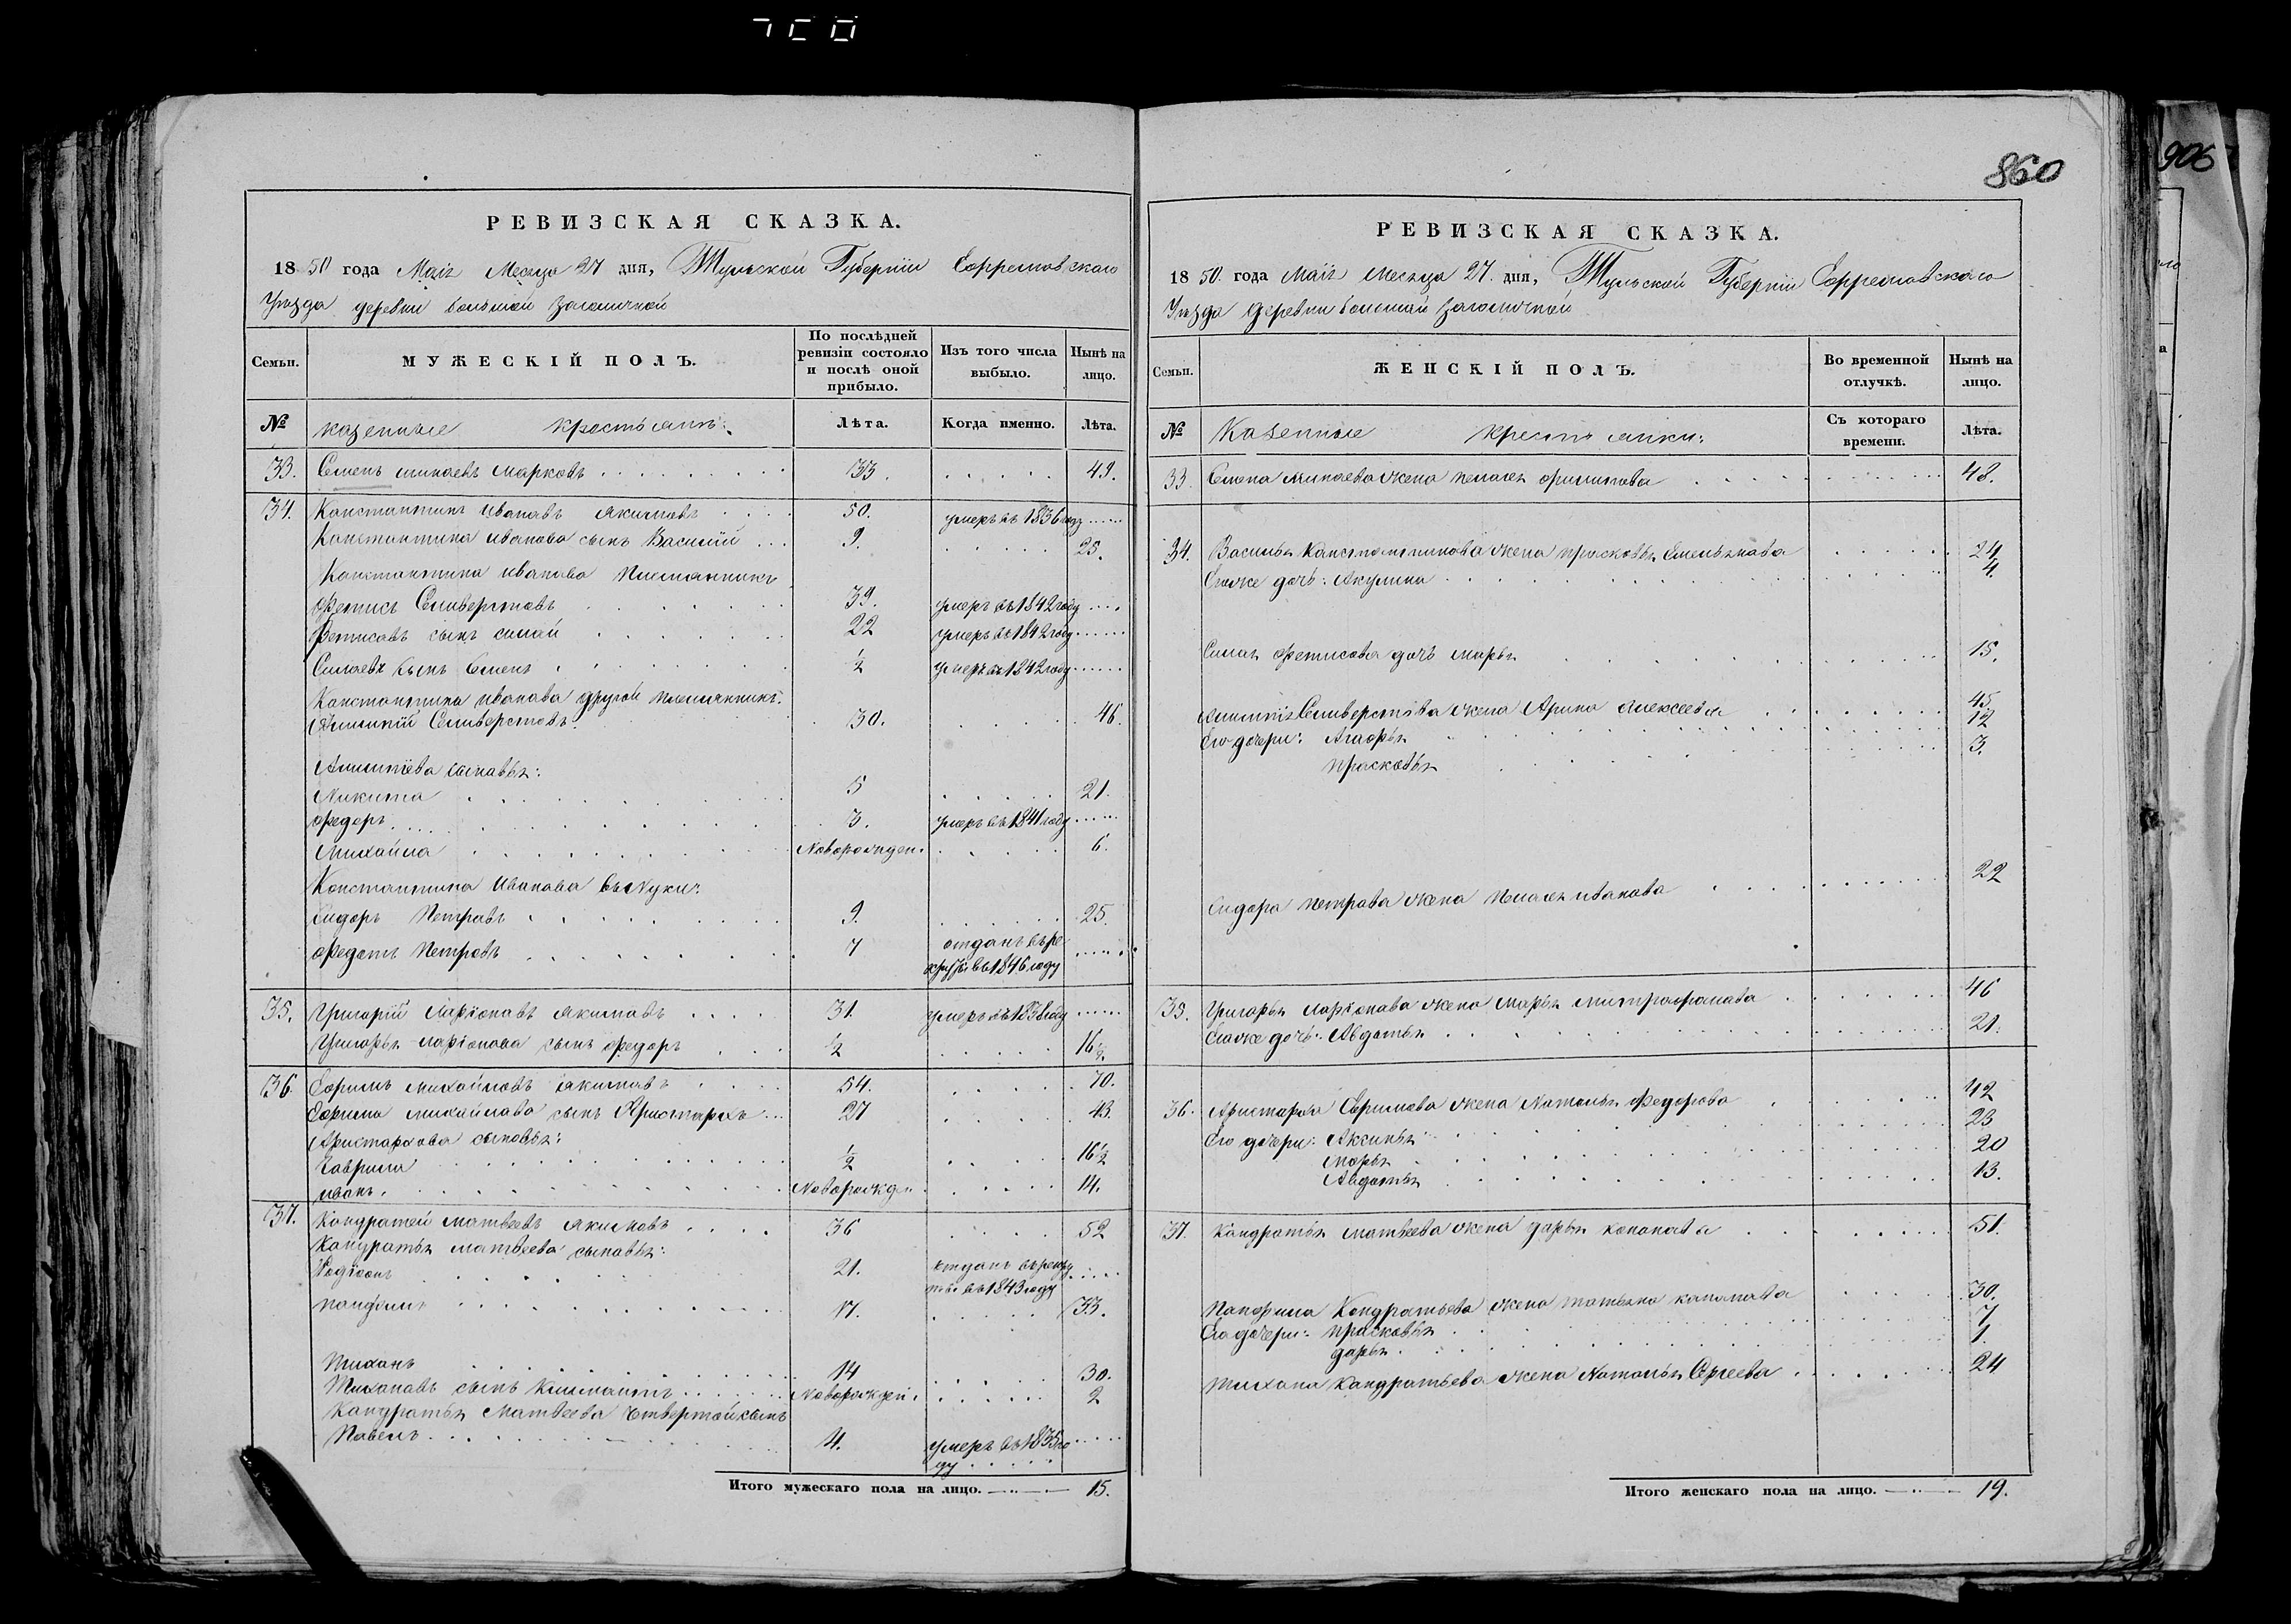 860
906
РЕВИЗСКАЯ СКАЗКА.
1850 года Маія Месяца 27 дня, Тульской Губерніи Ефремовскаго
Уѣзда деревни большой
Семьи.
МУЖЕСКІЙ ПОЛЪ.
По послѣдней ревизіи состояло и послѣ оной прибыло.
Изъ того числа выбыло.
Нынѣ на лицо.
№ казенные крестьяне:
Лѣта. Когда именно. Лѣта.
33. Семенъ минаевъ марковъ 33. 49.
34. Константинъ ивановъ якимовъ 50. умеръ въ 1836 году
Константина иванова сынъ Василий 9. 25.
Константина иванова племянникъ
Фетисъ Селиверстовъ 39. умеръ въ 1842 году
Фетисовъ сынъ силай 22 умеръ въ 1842 году
Силаевъ сынъ Семенъ ½ умеръ въ 1842 году
Константина иванова другой племянникъ
Селиверстовъ 30. 46.
сыновья:
Никита 5 21.
федоръ 3. умеръ въ 1841 году
Михайла Новорожден. 6.
Константина Иванова внуки:
Сидоръ Петровъ 9. 25.
федотъ Петровъ 7 отданъ въ ре-
круты въ 1846 году
35. Григорий Ларіоновъ якимовъ 31. умеръ въ 1838 году
Григорья ларіонова сынъ федоръ ½ 16½
36. Ефимъ михайловъ якимовъ 54. 70.
Ефима михайлова сынъ Аристархъ 27 43.
Аристархова сыновья:
Гаврила ½ 16½
иванъ Новорожден 14.
37. Кондратей матвеевъ якимовъ 36 52
Кондратья матвеева сыновья:
Родіонъ 21. отданъ въ рекру
ты въ 1843 году
панфилъ 17. 33.
Тиханъ 14 30.
Тихановъ сынъ Климантъ Новорожден. 2
Кондратья Матвеева четвертой сынъ
Павелъ 4. умеръ въ 1835 го
ду
Итого мужескаго пола на лицо. 15.
РЕВИЗСКАЯ СКАЗКА.
1850. года Маія Месяца 27. дня, Тульской Губерніи Ефремовскаго
Уѣзда деревни большой
Семьи.
ЖЕНСКІЙ ПОЛЪ.
Во временной отлучкѣ.
Нынѣ на лицо.
№ Казенные крестьянки:
Съ котораго времени. Лѣта.
33. Семена минаева жена пелагея филипова 48.
34. Василья Константинова жена прасковья Емельянова 24
Егоже дочь: Акулина 4.
Силая фетисова дочь марья 15.
Селиверстова жена Арина Алексеева 45.
Его дочери: 12
прасковья 3.
Сидора петрова жена пелагея иванова 22
35. Григорья ларіонова жена марья митрофанова 46
Егоже дочь: Авдотья 21.
36. Аристарха Ефимова жена Наталья федорова 42
Его дочери: Аксинья 23
марья 20
Авдотья 13.
37. Кондратья матвеева жена дарья кононова 51.
Панфила Кондратьева жена татьяна 30.
Его дочери: прасковья 7
дарья 1.
Тихана Кондратьева жена Наталья Сергеева 24
Итого женскаго пола на лицо. 19.